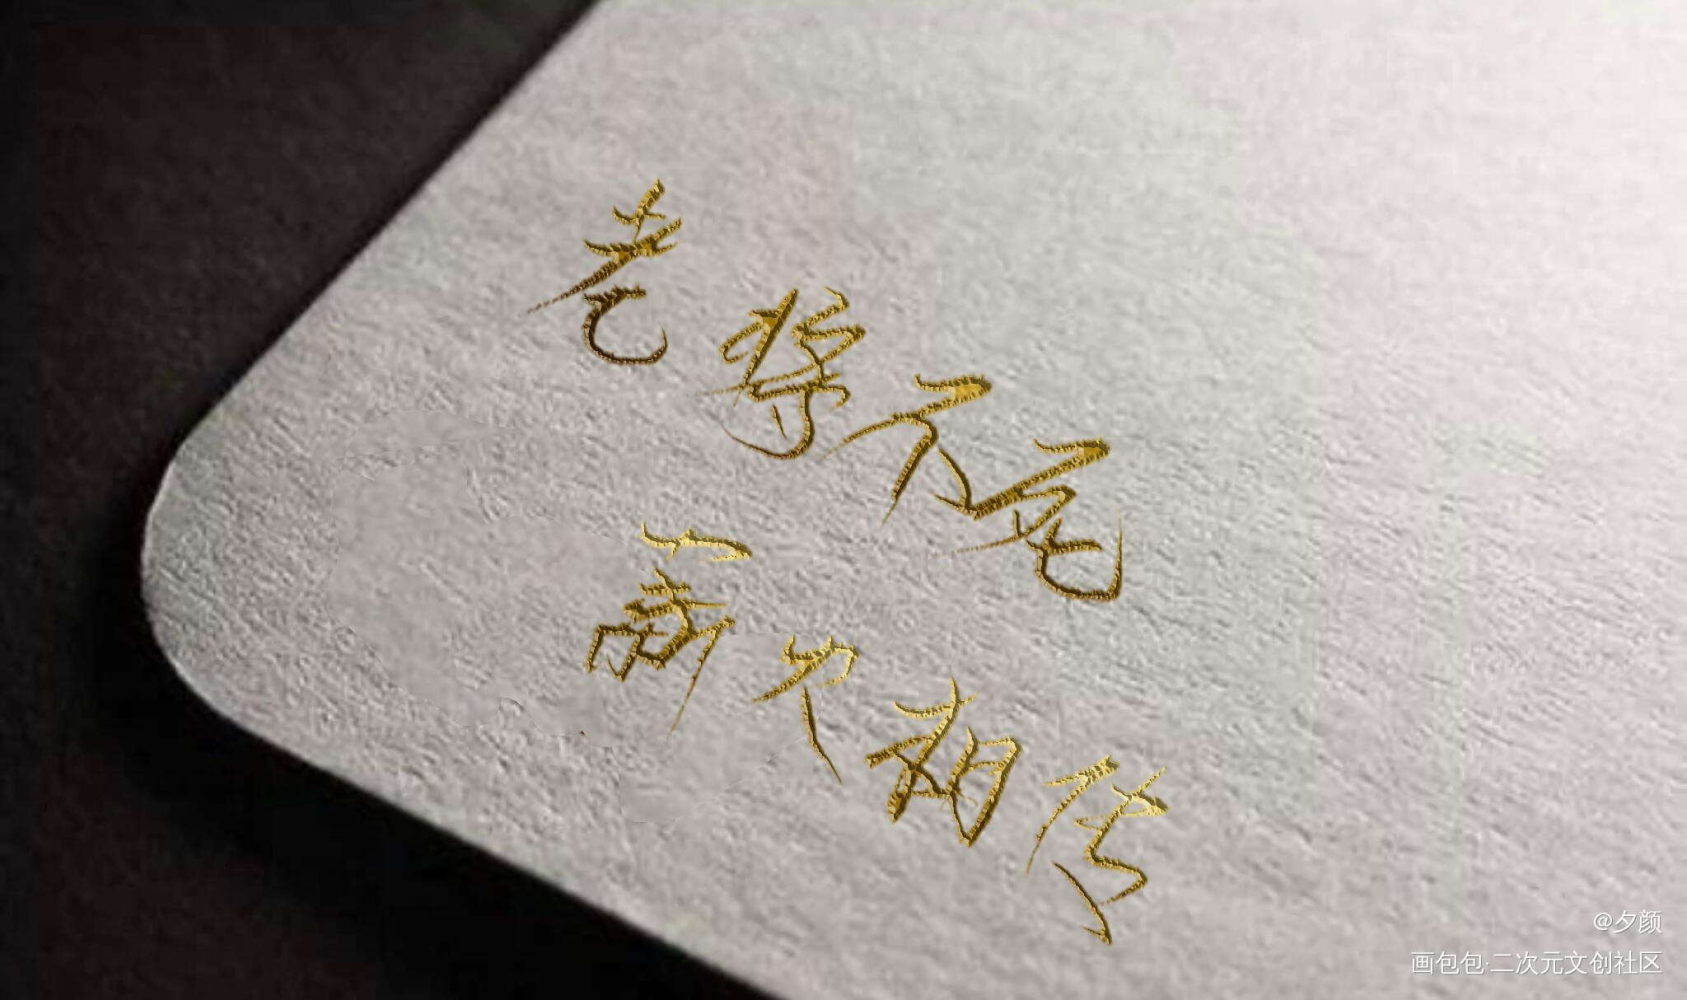 老将不死
薪火相传
@夕颜
画包包·二次元文创社区